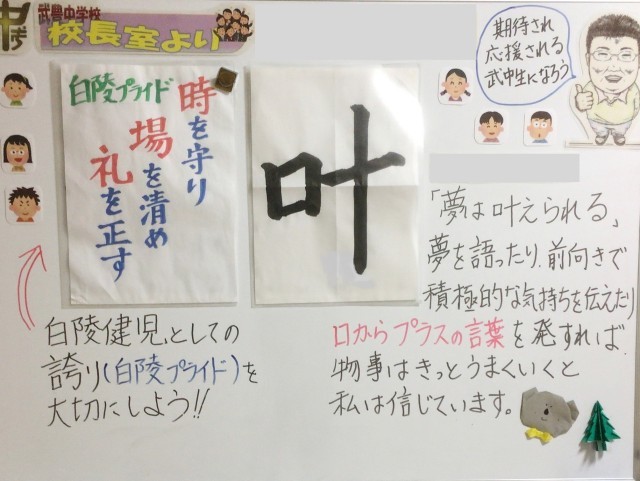 武豊中学校
校長室より
白陵プライド
時を守り
場を清め
礼を正す
叶
期待され
応援される
武中生になろう
「夢は叶えられる」
夢を語ったり、前向きで
積極的な気持ちを伝えたり
口からプラスの言葉を発すれば、
物事はきっとうまくいくと
私は信じています。
白陵健児としての
誇り(白陵プライド)を
大切にしよう!!